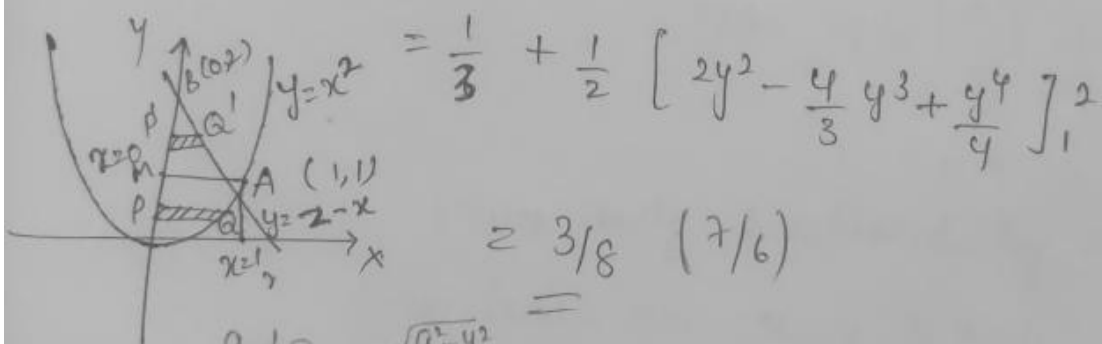 y
B (0,2)
y=x²
P' Q'
A (1,1)
P
Q y=2-x
x=1
x
= 1/3 + 1/2 [ 2y² - 4/3 y³ + y⁴/4 ]₁²
= 3/8 (7/6)